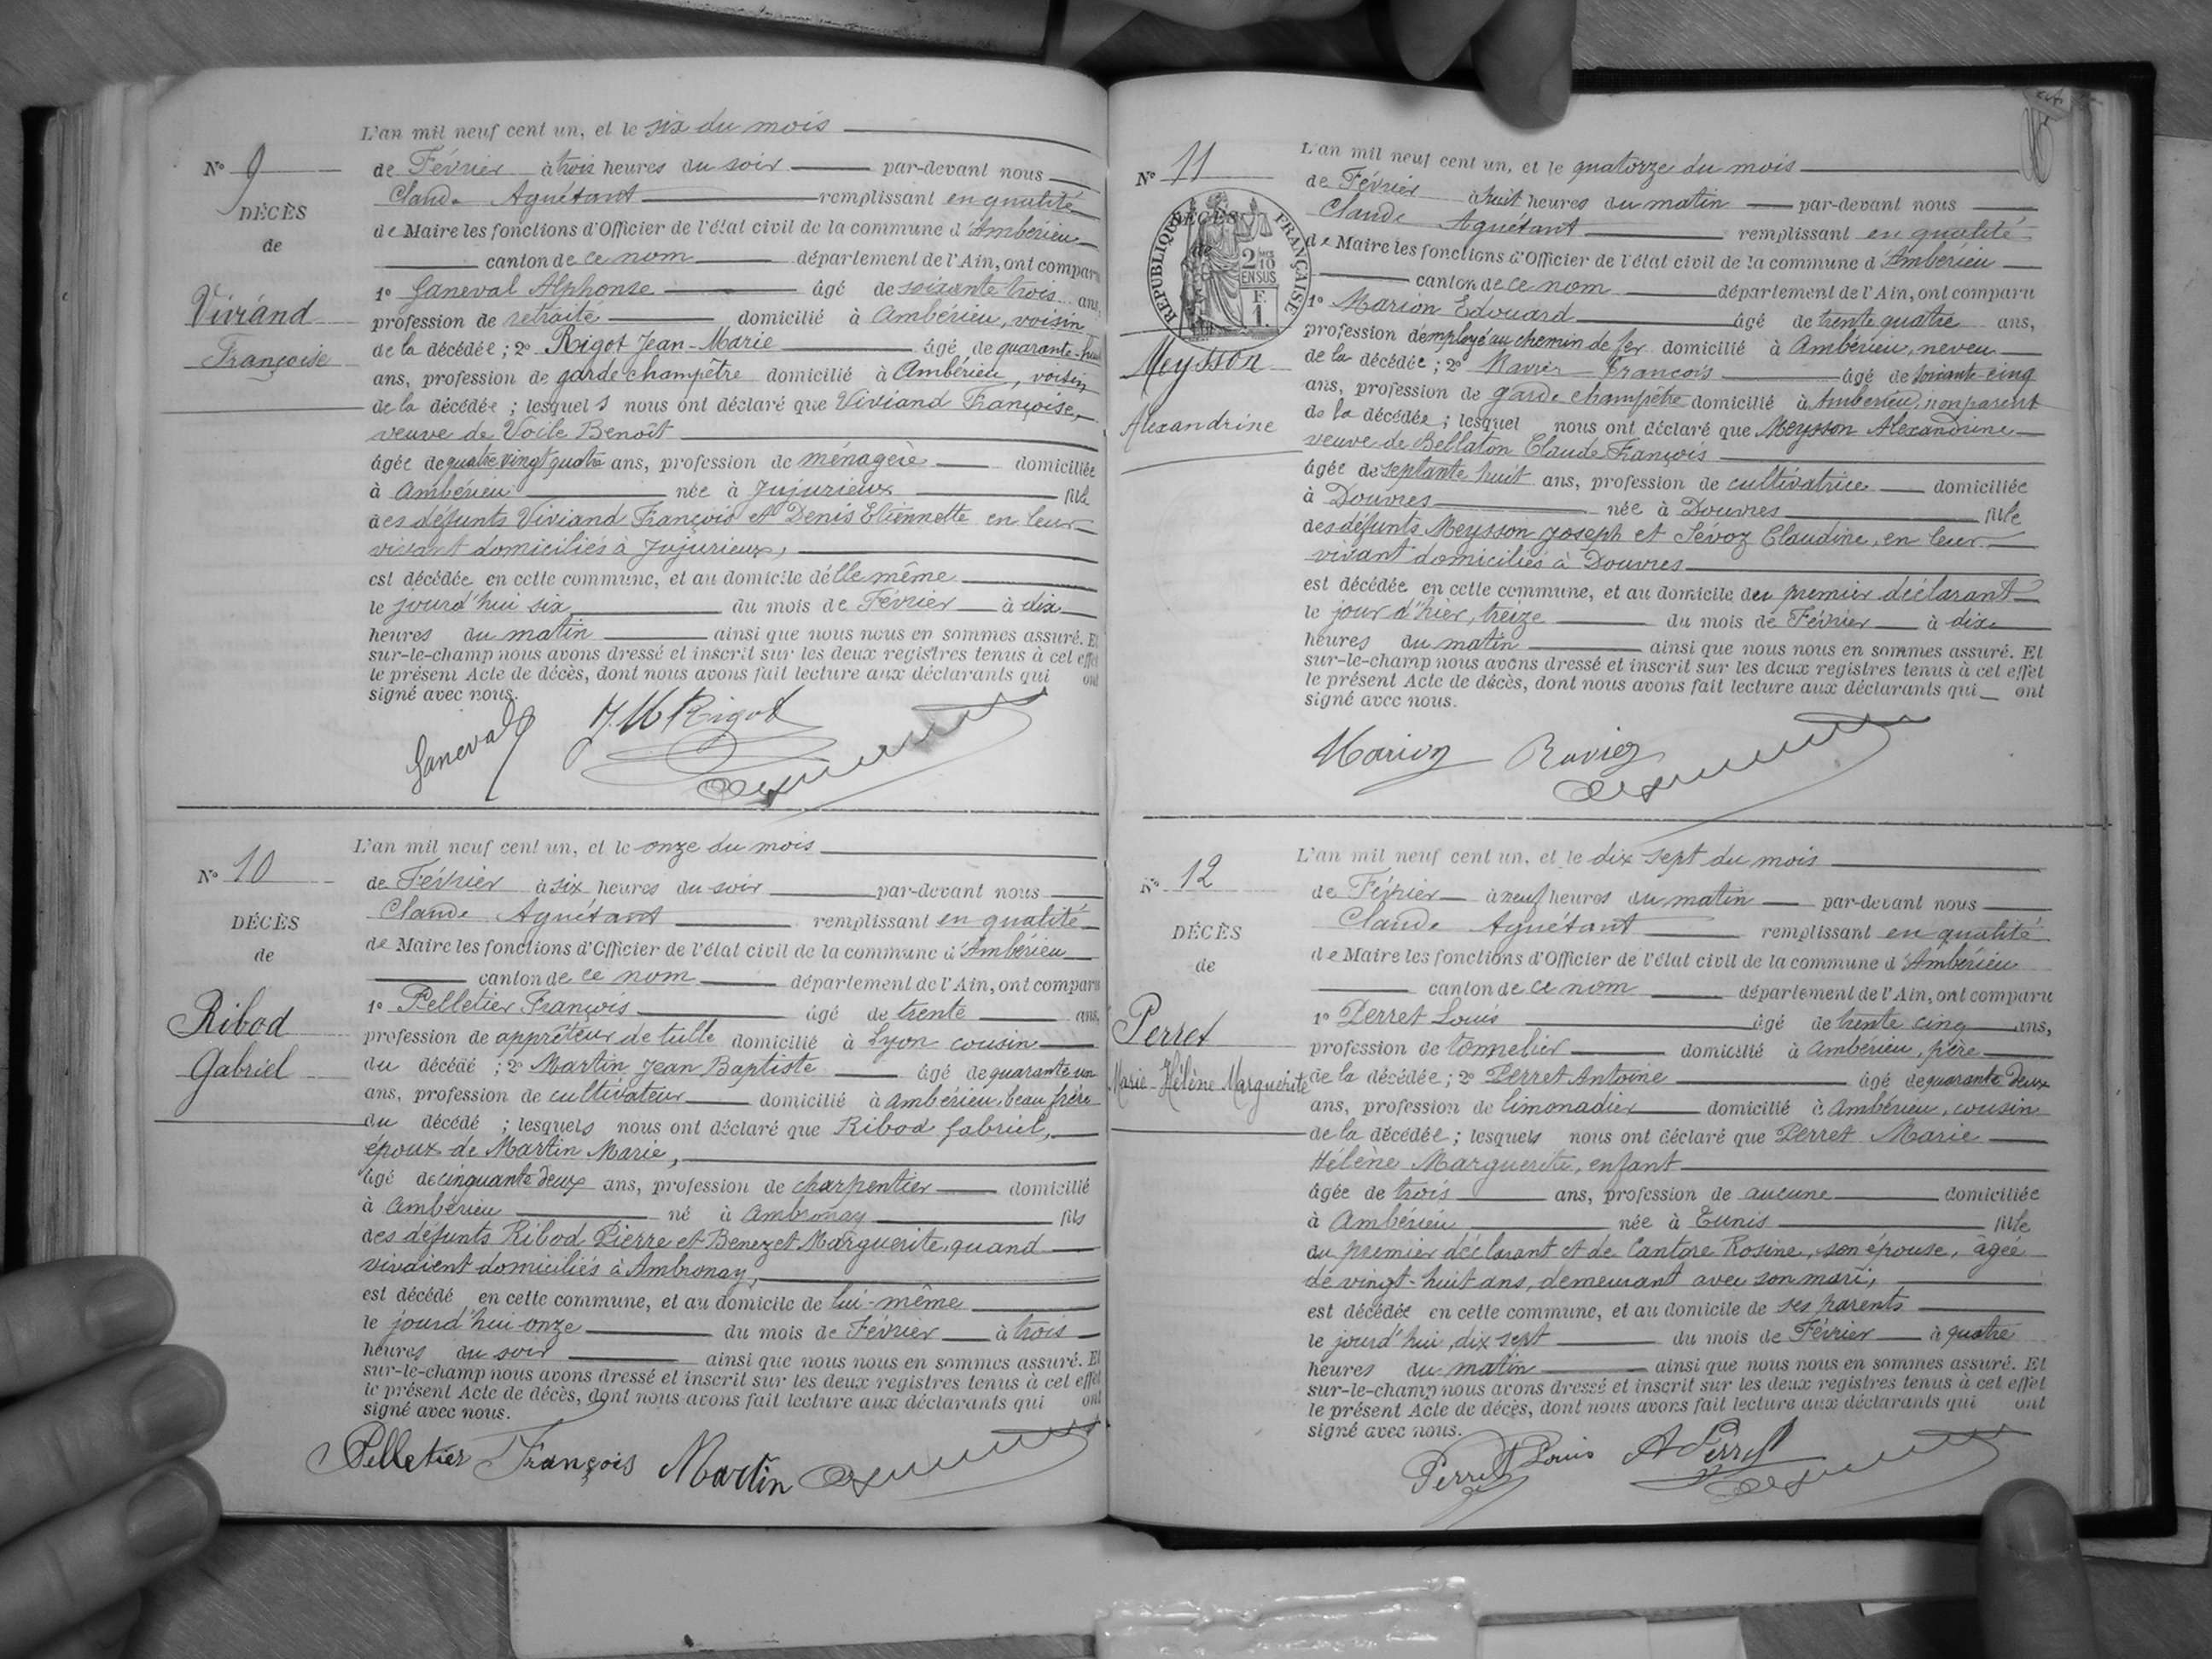 L'an mil neuf cent un, et le six du mois
N° 9
de Février à trois heures du soir par-devant nous
Claude Aguétant remplissant en qualité
DÉCÈS
de Maire les fonctions d'Officier de l'état civil de la commune d'Ambérieu
de
canton de ce nom département de l'Ain, ont comparu
1° Ganeval Alphonse âgé de soixante trois ans,
Viviand
profession de retraité domicilié à Ambérieu, voisin
de la décédée ; 2° Rigot Jean-Marie âgé de quarante-huit
Françoise
ans, profession de garde champêtre domicilié à Ambérieu, voisin
de la décédée ; lesquels nous ont déclaré que Viviand Françoise,
veuve de Voile Benoît
âgée de quatre vingt quatre ans, profession de ménagère domiciliée
à Ambérieu née à Jujurieux fille
des défunts Viviand François et Denis Etiennette en leur
vivant domiciliés à Jujurieux,
est décédée en cette commune, et au domicile d'elle même
le jourd'hui six du mois de Février à dix
heures du matin ainsi que nous nous en sommes assuré. Et
sur-le-champ nous avons dressé et inscrit sur les deux registres tenus à cet effet
le présent Acte de décès, dont nous avons fait lecture aux déclarants qui ont
signé avec nous.
Ganeval J. M. Rigot
L'an mil neuf cent un, et le onze du mois
N° 10
de Février à six heures du soir par-devant nous
Claude Aguétant remplissant en qualité
DÉCÈS
de Maire les fonctions d'Officier de l'état civil de la commune d'Ambérieu
de
canton de ce nom département de l'Ain, ont comparu
1° Pelletier François âgé de trente ans,
Ribod
profession de apprêteur de tulle domicilié à Lyon cousin
Gabriel
du décédé ; 2° Martin Jean Baptiste âgé de quarante un
ans, profession de cultivateur domicilié à Ambérieu, beau frère
du décédé ; lesquels nous ont déclaré que Ribod Gabriel,
époux de Martin Marie,
âgé de cinquante deux ans, profession de charpentier domicilié
à Ambérieu né à Ambronay fils
des défunts Ribod Pierre et Benezet Marguerite, quand
vivaient domiciliés à Ambronay,
est décédé en cette commune, et au domicile de lui-même
le jourd'hui onze du mois de Février à trois
heures du soir ainsi que nous nous en sommes assuré. Et
sur-le-champ nous avons dressé et inscrit sur les deux registres tenus à cet effet
le présent Acte de décès, dont nous avons fait lecture aux déclarants qui ont
signé avec nous.
Pelletier François Martin
L'an mil neuf cent un, et le quatorze du mois
N° 11
de Février à huit heures du matin par-devant nous
Claude Aguétant remplissant en qualité
DÉCÈS
de
RÉPUBLIQUE FRANÇAISE
2/10 EN SUS
F.
1.
de Maire les fonctions d'Officier de l'état civil de la commune d'Ambérieu
canton de ce nom département de l'Ain, ont comparu
1° Marion Edouard âgé de trente quatre ans,
profession d'employé au chemin de fer domicilié à Ambérieu, neveu
Meysson
de la décédée ; 2° Ravier François âgé de soixante-cinq
ans, profession de garde champêtre domicilié à Ambérieu, non parent
Alexandrine
de la décédée ; lesquel nous ont déclaré que Meysson Alexandrine
veuve de Bellaton Claude François
âgée de septante huit ans, profession de cultivatrice domiciliée
à Douvres née à Douvres fille
des défunts Meysson Joseph et Sévoz Claudine, en leur
vivant domiciliés à Douvres
est décédée en cette commune, et au domicile du premier déclarant
le jour d'hier, treize du mois de Février à dix
heures du matin ainsi que nous nous en sommes assuré. Et
sur-le-champ nous avons dressé et inscrit sur les deux registres tenus à cet effet
le présent Acte de décès, dont nous avons fait lecture aux déclarants qui ont
signé avec nous.
Marion Ravier
L'an mil neuf cent un, et le dix sept du mois
N° 12
de Février à neuf heures du matin par-devant nous
Claude Aguétant remplissant en qualité
DÉCÈS
de Maire les fonctions d'Officier de l'état civil de la commune d'Ambérieu
de
canton de ce nom département de l'Ain, ont comparu
1° Perret Louis âgé de trente cinq ans,
Perret
profession de tonnelier domicilié à Ambérieu, père
Marie-Hélène Marguerite
de la décédée ; 2° Perret Antoine âgé de quarante deux
ans, profession de limonadier domicilié à Ambérieu, cousin
de la décédée ; lesquels nous ont déclaré que Perret Marie
Hélène Marguerite, enfant
âgée de trois ans, profession de aucune domiciliée
à Ambérieu née à Tunis fille
du premier déclarant et de Cantore Rosine, son épouse, âgée
de vingt-huit ans, demeurant avec son mari,
est décédée en cette commune, et au domicile de ses parents
le jourd'hui, dix sept du mois de Février à quatre
heures du matin ainsi que nous nous en sommes assuré. Et
sur-le-champ nous avons dressé et inscrit sur les deux registres tenus à cet effet
le présent Acte de décès, dont nous avons fait lecture aux déclarants qui ont
signé avec nous.
Perret Louis A Perret